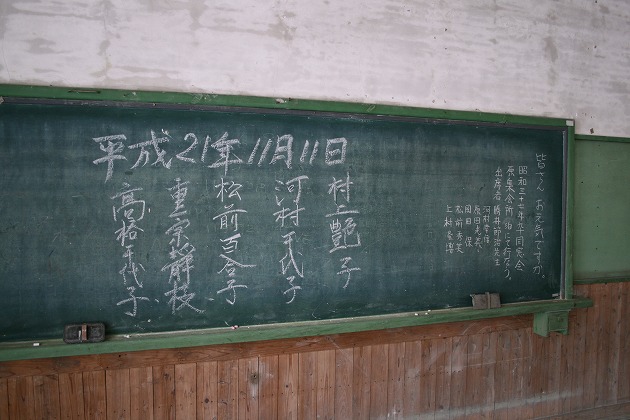 平成21年11月11日
村上艶子
河村千代子
松前百合子
重宗静枝
高橋千代子
皆さん お元気ですか、
昭和三十七年卒同窓会
原集会所に泊にて行なう。
出席者 勝井節治先生
原田
岡田 保
松前秀美
上村